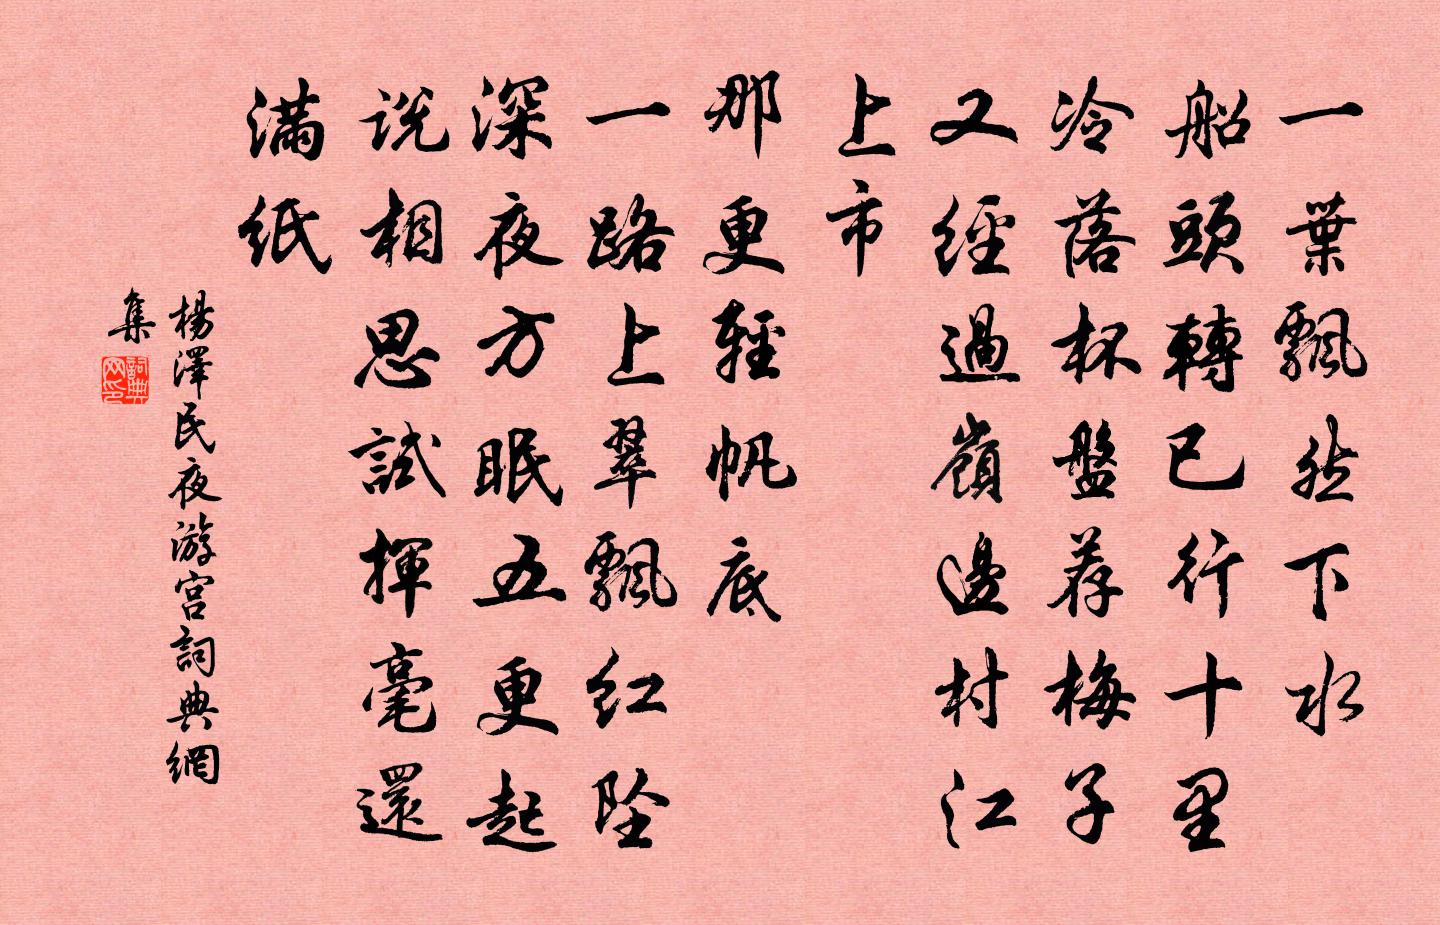 一葉飄然下水
船頭轉已行十里
冷落杯盤荐梅子
又經過嶺邊村江
上市
那更輕帆底
一路上翠飄红坠
深夜方眠五更起
说相思試揮毫還
滿紙
楊澤民夜游宫詞典網
集
詞典
网印